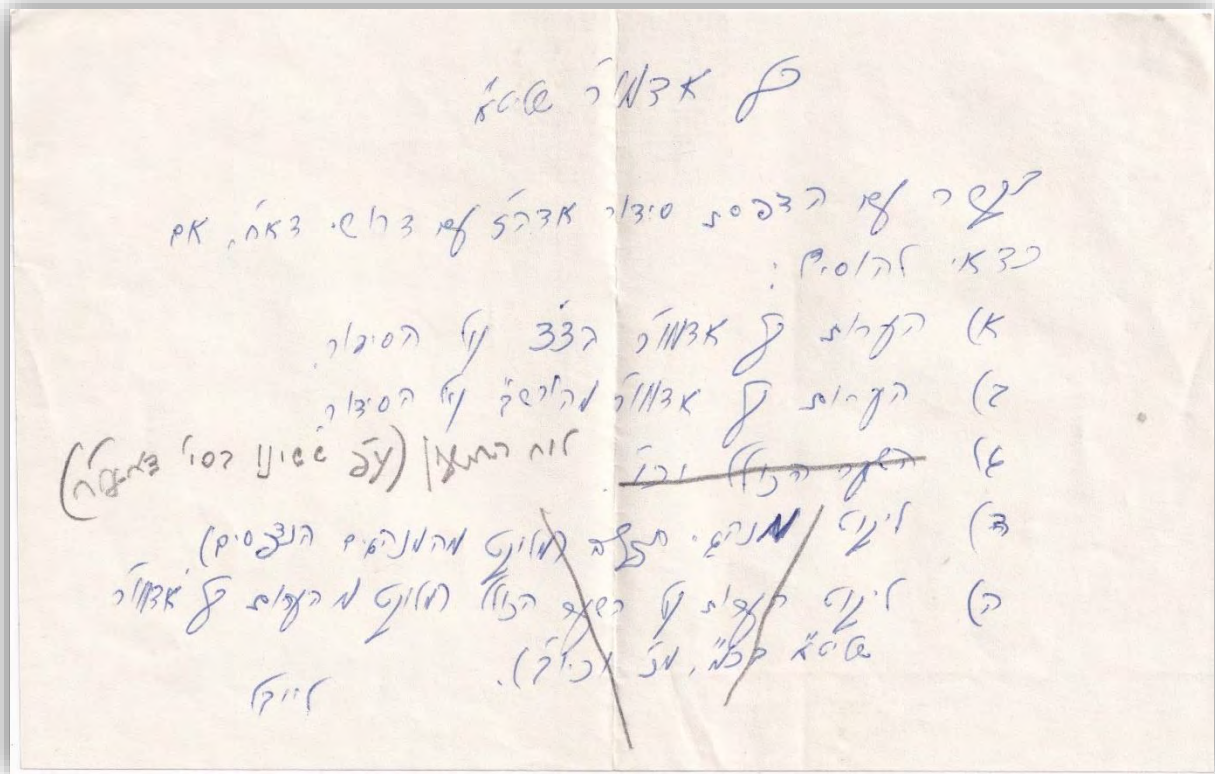 כ"ק אדמו"ר שליט"א
בקשר עם הדפסת סידור אדה"ז עם דרושי דא"ח, אם
כדאי להוסיף:
א) הערות כ"ק אדמו"ר הצ"צ על הסידור.
ב) הערות כ"ק אדמו"ר מהורש"ב על הסידור
ג) השער הכולל וכו'. לוח התיקון (ע"פ ששינו בסי'
ד) ליקוט ממנהגי חב"ד (מלוקט מהמנהגים הנדפסים)
ה) ליקוט הערות על השער הכולל (מלוקט מהערות כ"ק אדמו"ר
שליט"א בכ"מ, וכיו"ב).
לייבל